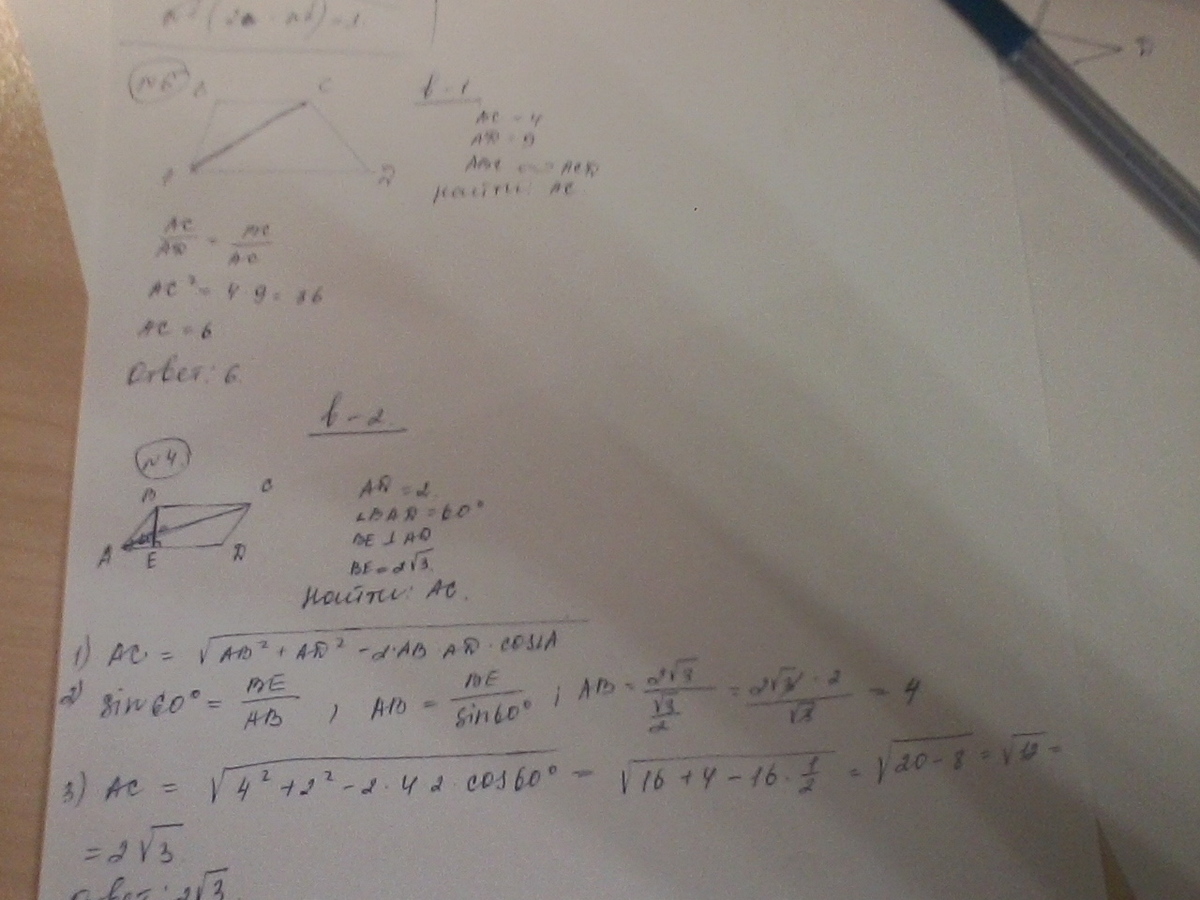 №6
C
A
D
в-1
BC = 4
AD = 9
ABC ∾ ACD
Найти: AC
AC/AD = BC/AC
AC² = 4·9 = 36
AC = 6
Ответ: 6.
в-2.
№4.
B
C
A
E
D
AD = 2.
∠BAD = 60°
BE ⊥ AD
BE = 2√3.
Найти: AC.
1) AC = √(AB² + AD² - 2·AB·AD·cos∠A)
2) sin60° = BE/AB ; AB = BE/sin60° ; AB = 2√3/(√3/2) = 2√3·2/√3 = 4
3) AC = √(4² + 2² - 2·4·2·cos60°) = √(16 + 4 - 16·1/2) = √(20-8) = √12 =
= 2√3.
Ответ: 2√3.
D